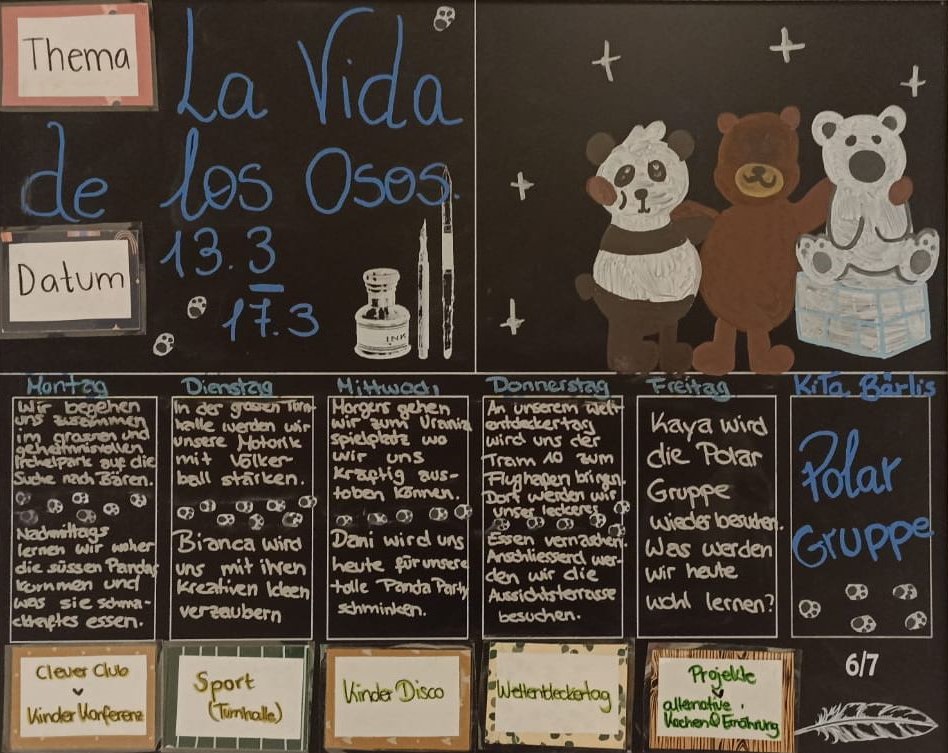 Thema
La Vida
de los Osos.
Datum
13.3
17.3
INK
Montag
Wir begehen
uns zusammen
im grossen und
geheimnisvollen
Irchelpark auf die
Suche nach Bären.
Nachmittags
lernen wir woher
die süssen Pandas
kommen und
was sie schma-
ckhaftes essen.
Clever Club
Kinder Konferenz
Dienstag
In der grossen Turn-
halle werden wir
unsere Motorik
mit Völker-
ball stärken.
Bianca wird
uns mit ihren
Kreativen Ideen
verzaubern
Sport
(Turnhalle)
Mittwoch
Morgens gehen
wir zum Urania
spielplatz wo
wir uns
kräftig aus-
toben können.
Dani wird uns
heute für unsere
tolle Panda Party
schminken.
Kinder Disco
Donnerstag
An unserem Welt-
entdeckertag
wird uns der
Tram 10 zum
Flughafen bringen.
Dort werden wir
unser leckeres
Essen vernaschen.
Anschliessend wer-
den wir die
Aussichtsterrasse
besuchen.
Weltentdeckertag
Freitag
Kaya wird
die Polar
Gruppe
wieder besuchen.
Was werden
wir heute
wohl lernen?
Projekte
alternative
Kochen & Ernährung
KiTa Bärlis
Polar
Gruppe
6/7